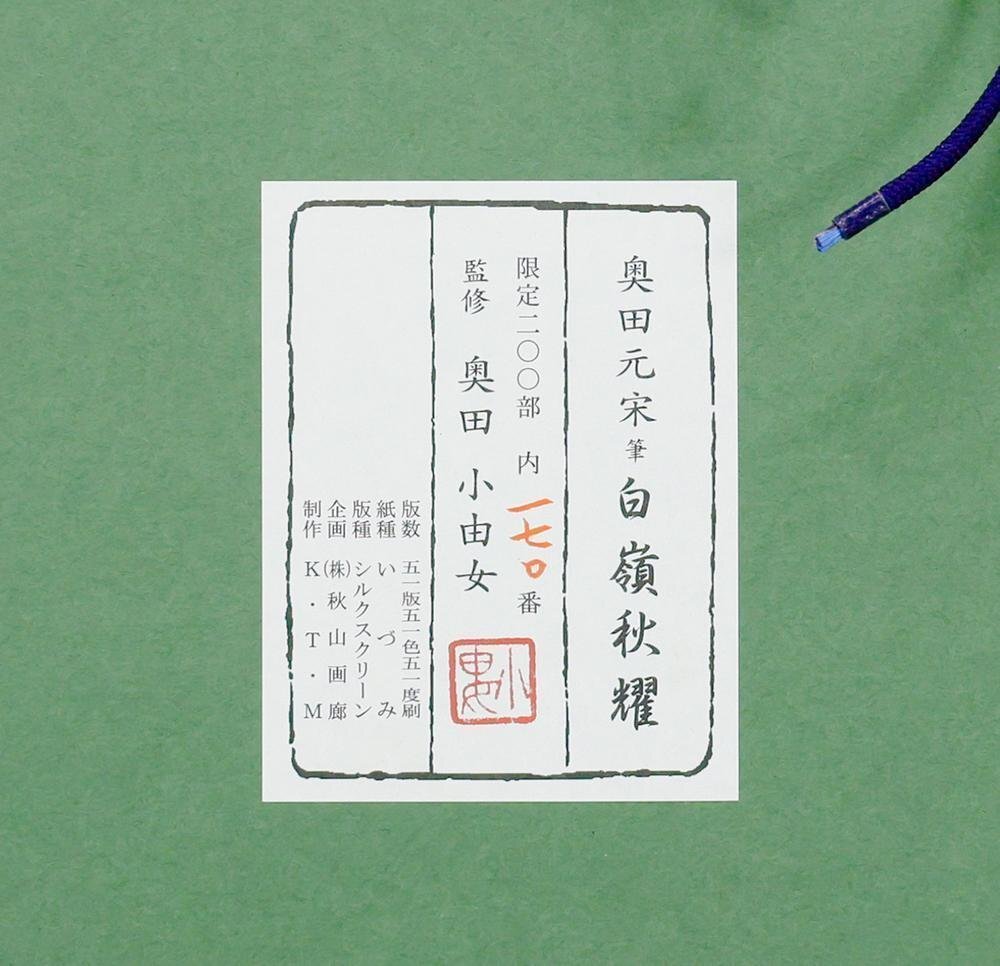 奥田元宋筆 白嶺秋耀
限定二〇〇部 内 一七〇番
監修 奥田 小由女
小由女
版数 五一版五一色五一度刷
紙種 いづみ
版種 シルクスクリーン
企画 (株)秋山画廊
制作 K・T・M